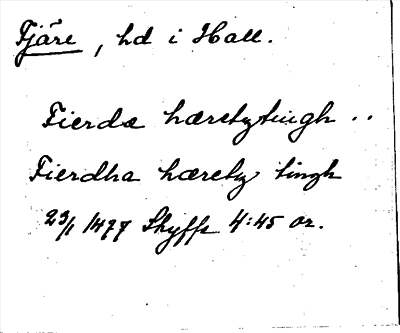 Fjäre, hd i Hall.
Fierdæ hæretztingh ..
Fierdha hæretz tingh
23/1 1477 Skyffe 4:45 or.